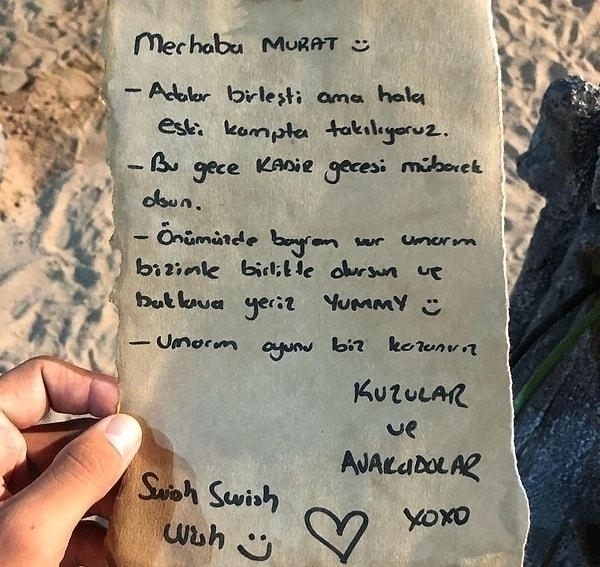 Merhaba MURAT :)
- Adalar birleşti ama hala
eski kampta takılıyoruz.
- Bu gece KADİR gecesi mübarek
olsun.
- Önümüzde bayram var umarım
bizimle birlikte olursun ve
baklava yeriz YUMMY :)
- Umarım oyunu biz kazanırız
KUZULAR
ve
AVAKADOLAR
XOXO
Swish Swish
Wish :)
♡